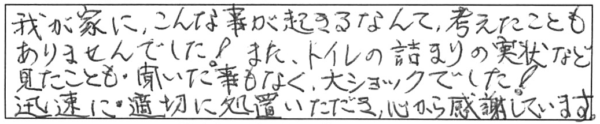 我が家に、こんな事が起きるなんて、考えたことも
ありませんでした! また、トイレの詰まりの実状など
見たことも・聞いた事もなく、大ショックでした!
迅速に・適切に処置いただき、心から感謝しています。